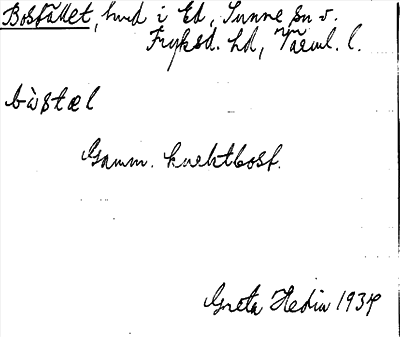 Bostället, hmd i Ed, Sunne sn v.
Fryksd. hd, Värml. l.
bὼstæl
Gamm. knektbost.
Greta Hedin 1934